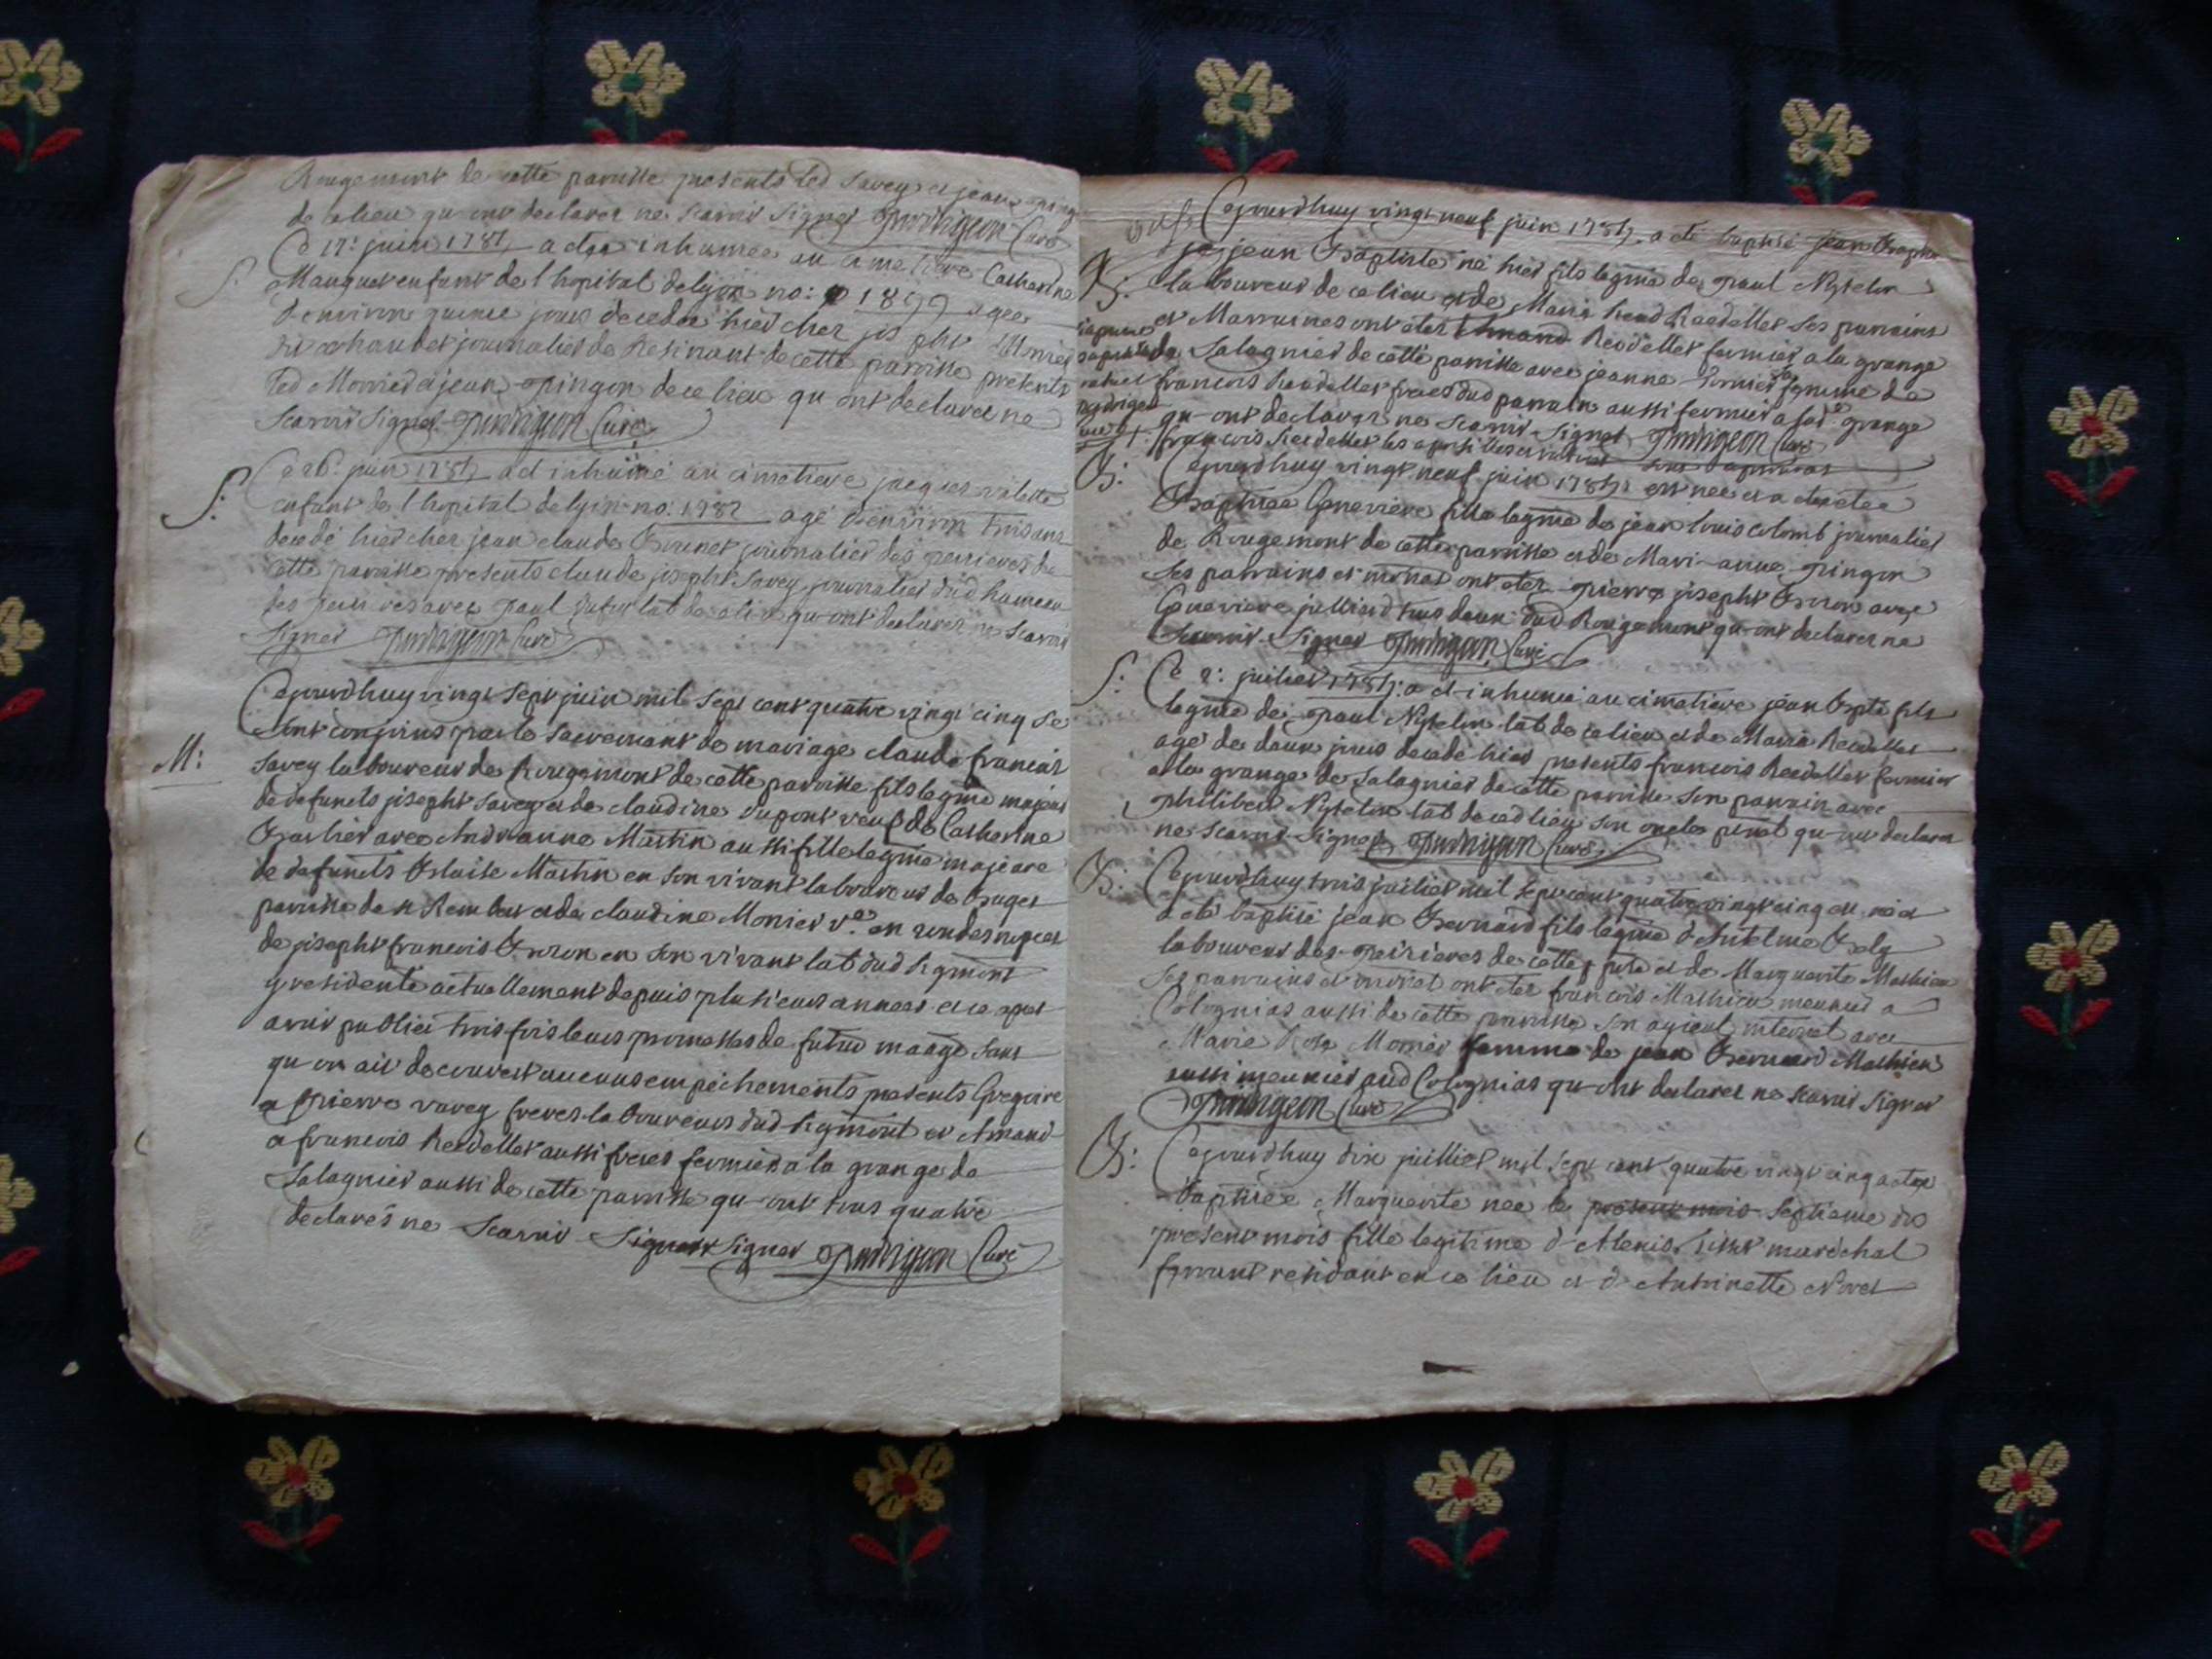 Rougemont de cette paroisse presents led Savey et jean
de ce lieu qu ont declarer ne scavoir signer Curé
Ce juin 1785 a etee inhumee au cimetiere Catherine
S:
Mauguet enfant de l hopital de lyon no: 1899 agee
d environ quinze jours decedee hier chez joseph Monier
journalier de Resinant de cette paroisse presents
led Monier et jean pingon de ce lieu qu ont declarer ne
scavoir signer Curé
S:
Ce 26: juin 1785 a et inhumé au cimetiere jacques
enfant de l hopital de lyon no: 1982 agé d environ trois ans
decedé hier chez jean claude Brunet journalier des peirieres de
cette paroisse presents claude joseph Savey journalier dud hameau
des peirieres avec paul lab de ce lieu qu ont declarer ne scavoir
signer Curé
Cejourdhuy vingt sept juin mil sept cent quatre vingt cinq se
sont conjoins par le sacrement de mariage claude francois
M:
Savey laboureur de Rougemont de cette paroisse fils legme majeur
de defuncts joseph Savey et de claudine Dupont veuf de Catherine
avec Andreanne Martin aussi fille legme majeure
de defuncts Blaise Martin en son vivant laboureur de
paroisse de st Rembert et de claudine Monier en secondes nopces
de joseph francois Brron en son vivant lab dud Rgmont
y residente actuellement depuis plusieurs annees et ce apres
avoir publiei trois fois leurs promesses de futur maage sans
qu on ait decouvert aucuns empechements presents Gregoire
et pierre varey freres laboureurs dud Rgmont et Amand
et francois Reedellet aussi freres fermiers a la grange de
Salagnier aussi de cette paroisse qu ont tous quatre
declarés ne scavoir signer signer Curé
Cejourdhuy vingt neuf juin 1785 a eté baptisé jean Bapte
je jean Baptiste né hier fils legme de paul Nyvelon
B:
laboureur de ce lieu et de Marie Reedellet ses parrains
et Marraines ont eter Amand Reedellet fermier a la grange
de Salagnier de cette paroisse avec jeanne femme de
francois Reedellet frere dud parrain aussi fermier a lad grange
qu ont declarer ne scavoir signer Curé
francois Reedellet
B:
Cejourdhuy vingt neuf juin 1785 est nee et a etee
Baptisee Genevieve fille legme de jean louis colomb journalier
de Rougemont de cette paroisse et de Marianne pingon
ses parrains et ont eter pierre joseph Brron avec
Genevieve julliard tous deux dud Rougemont qu ont declarer ne
scavoir signer Curé
S:
Ce 2: juillet 1785 a et inhumé au cimetiere jean Bpte fils
legme de paul Nyvelon lab de ce lieu et de Marie Reedellet
agé de deux jours decedé hier presents francois Reedellet fermier
a la grange de Salagnier de cette paroisse son parrain avec
philibert Nyvelon lab de ced lieu son oncle qu ont declarer
ne scavoir signer Curé
B:
Cejourdhuy trois juillet mil sept cent quatre vingt cinq est né et
a eté baptisé jean Bernard fils legme d Antelme Boly
laboureur des peirieres de cette psse et de Marguerite Mathieu
ses parrains et ont eter francois Mathieu meunier a
Colognias aussi de cette paroisse son ayieul maternel avec
Marie Rose Monier femme de jean Bernard Mathieu
aussi meunier aud Colognias qu ont declarer ne scavoir signer
Curé
B:
Cejourdhuy dix juillet mil sept cent quatre vingt cinq a etee
baptisee Marguerite nee le present mois septieme du
present mois fille legitime d Alexis marechal
ferrant residant en ce lieu et d Antoinette